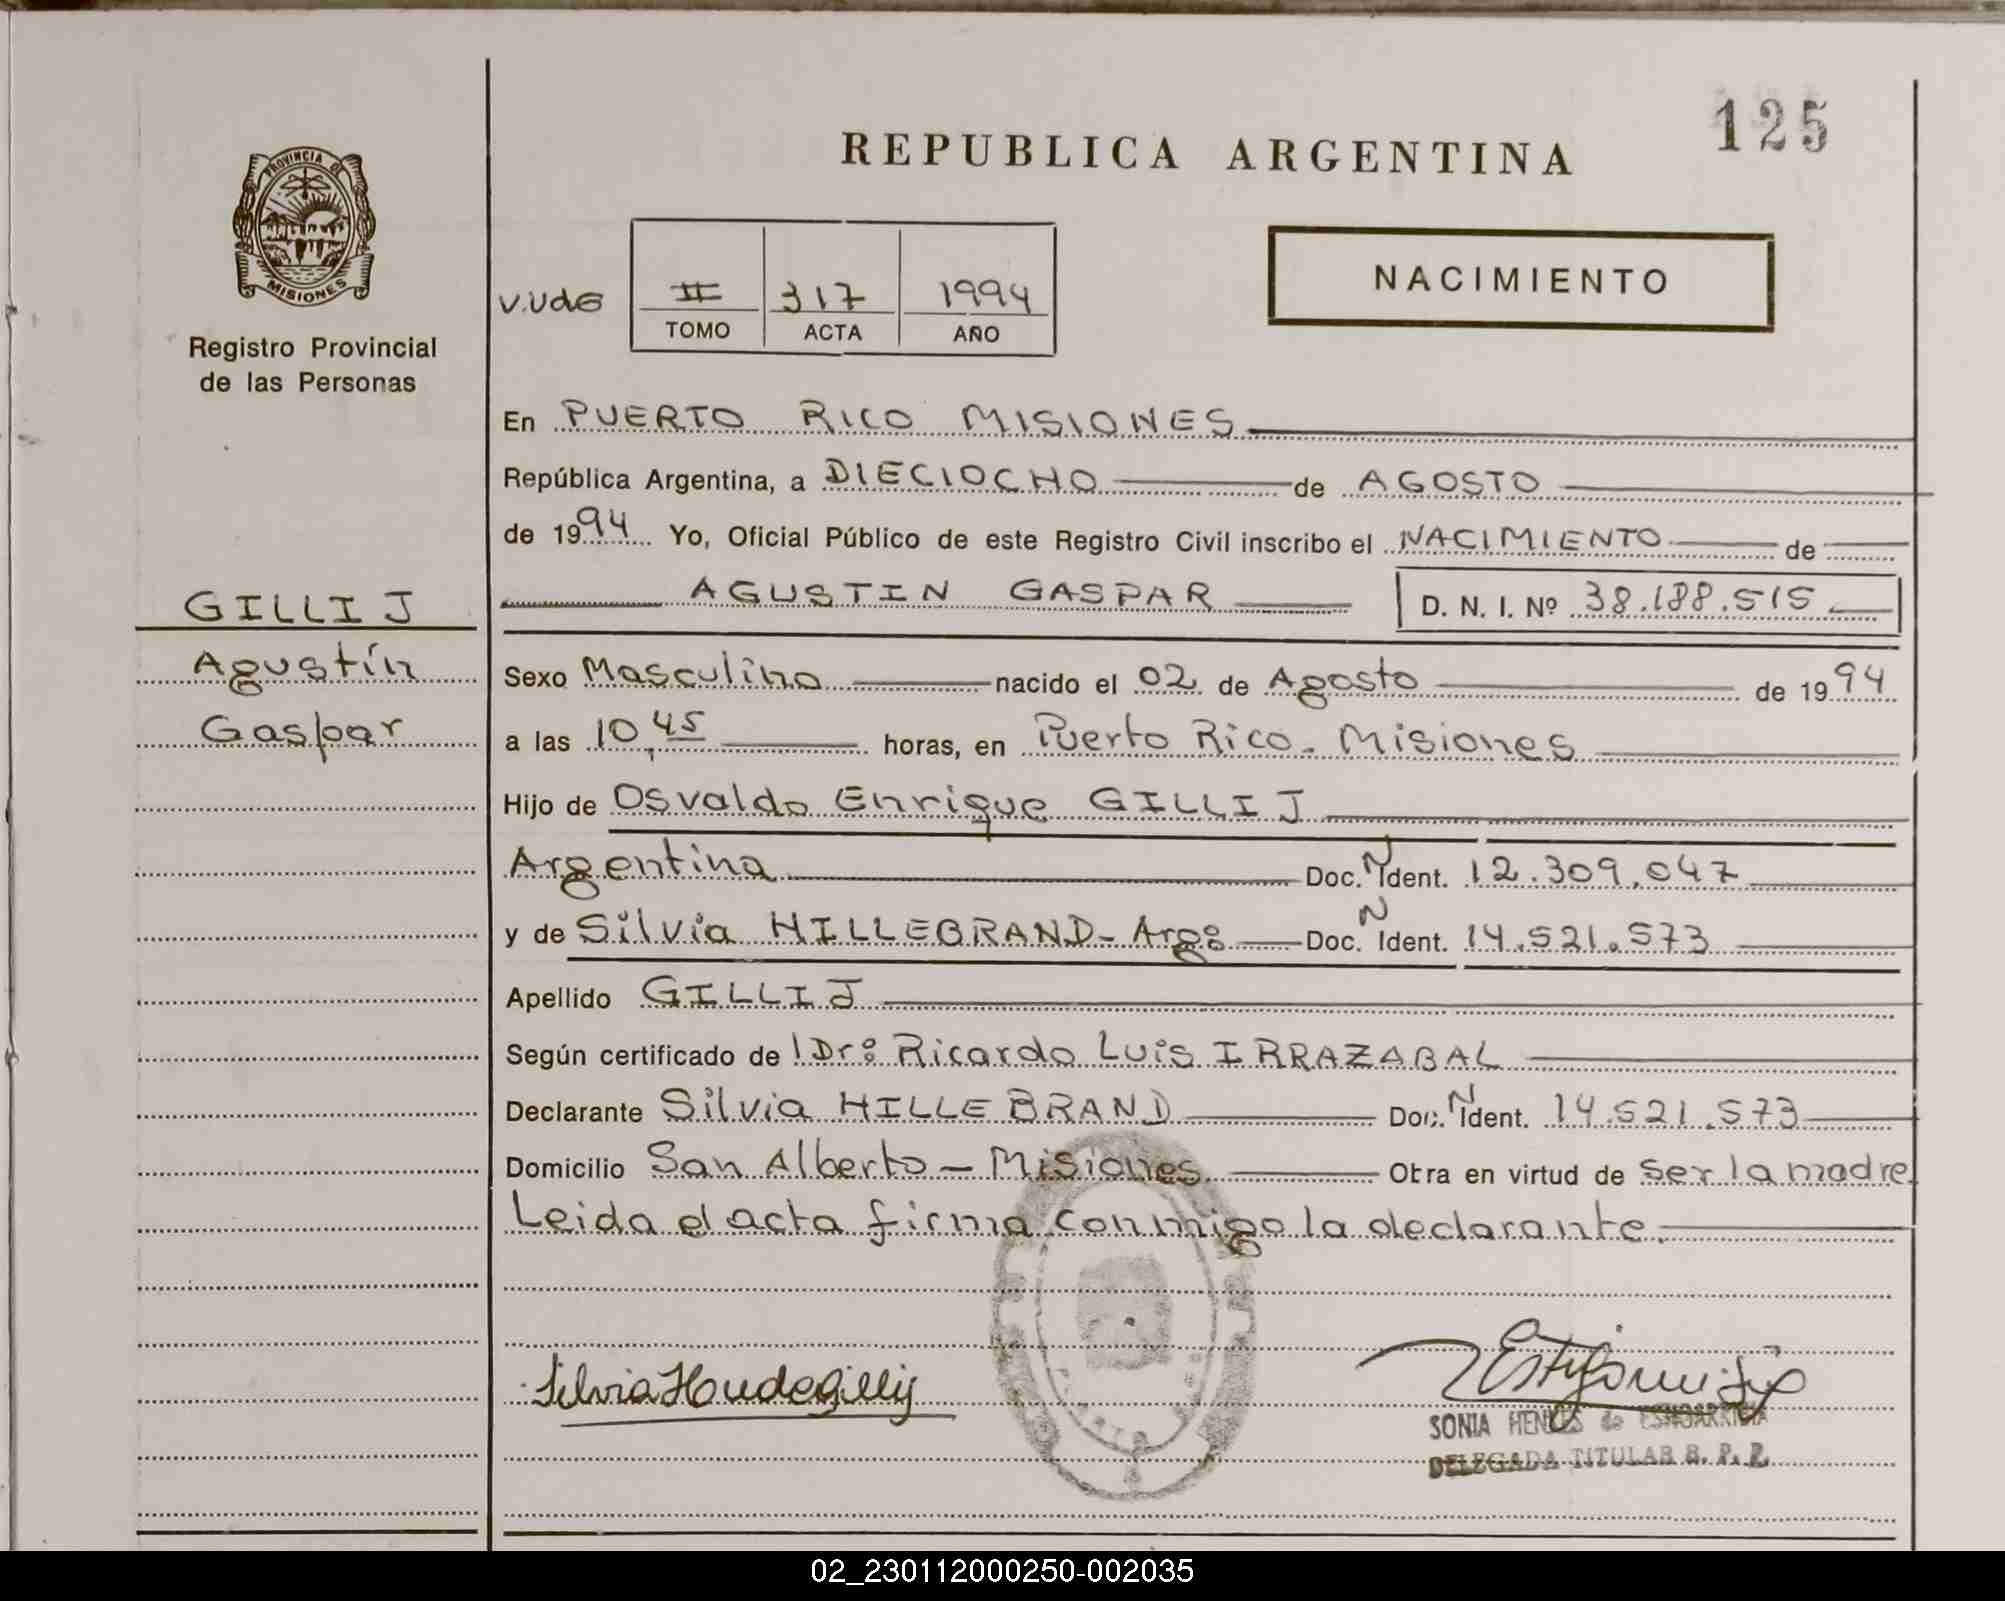 125
REPUBLICA ARGENTINA
PROVINCIA DE
MISIONES
NACIMIENTO
V.Ude
II 317 1994
TOMO ACTA AÑO
Registro Provincial
de las Personas
En PUERTO RICO MISIONES
República Argentina, a DIECIOCHO de AGOSTO
de 1994 Yo, Oficial Público de este Registro Civil inscribo el NACIMIENTO de
AGUSTIN GASPAR D. N. I. Nº 38.188.515
GILLIJ
Agustín
Gaspar
Sexo Masculino nacido el 02 de Agosto de 1994
a las 10,45 horas, en Puerto Rico - Misiones
Hijo de Osvaldo Enrique GILLIJ
Argentina Doc. N Ident. 12.309.047
y de Silvia HILLEBRAND - Arg: Doc. N Ident. 14.521.573
Apellido GILLIJ
Según certificado de Dr: Ricardo Luis IRRAZABAL
Declarante Silvia HILLEBRAND Doc. N Ident. 14.521.573
Domicilio San Alberto - Misiones Obra en virtud de ser la madre
Leida el acta firma conmigo la declarante.
SONIA HENKES de
DELEGADA TITULAR R. P. P.
02_230112000250-002035